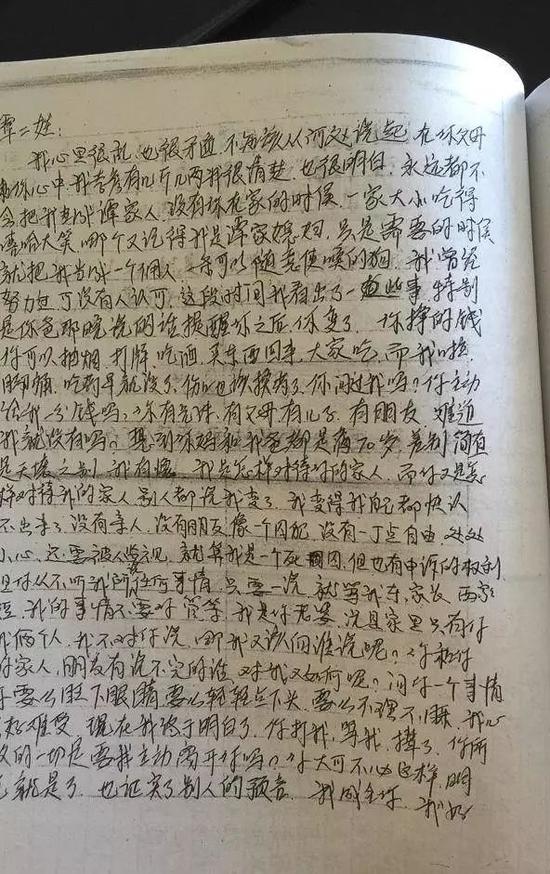 我心里很乱，也很矛盾，不知该从何处说起，在你父母
和你心中，我李多有几斤几两我很清楚，也很明白，永远都不
会把我当成谭家人，没有你在家的时候，一家大小吃得
嘻哈大笑，哪个又记得我是谭家媳妇，只是需要的时候
就把我当成一个佣人，一条可以随意使唤的狗，我曾经
努力过可没有人认可，这段时间我看出了一些事，特别
是你爸那晚说的话提醒你之后，你变了，你挣的钱
你可以抽烟，打牌，吃酒，买东西回来，大家吃，而我啦，
吃药早就没了，伤口也该换药了，你问过我吗？你主动
给我一分钱吗，你有兄妹，有父母有儿子，有朋友，难道
我就没有吗？想到你妈和我爸都是满70岁，差别简直
是天壤之别，我有愧，我是怎样对待你的家人，而你又是怎
样对待我的家人，别人都说我变了，我变得我自己都快认
不出来了，没有亲人，没有朋友像一个囚犯，没有一丁点自由，处处
小心，还要被人监视，就算我是一个死囚，但也有申诉的权利
但你从不听我所任何事情，只要一说，就骂我东家长，西家
短，我的事情不要你管等，我是你老婆，况且家里只有你
我俩个人，我不对你说，哪我又该向谁说呢？你和你
的家人，朋友有说不完的话，对我又如何呢？问你一个事情
你要么眨下眼睛，要么轻轻点下头，要么不理不睬，我心
里好难受，现在我终于明白了，你打我，骂我，撵了，你所
做的一切是要我主动离开你吗？你大可不必这样，明
说就是了，也证实了别人的预言，我成全你，我好